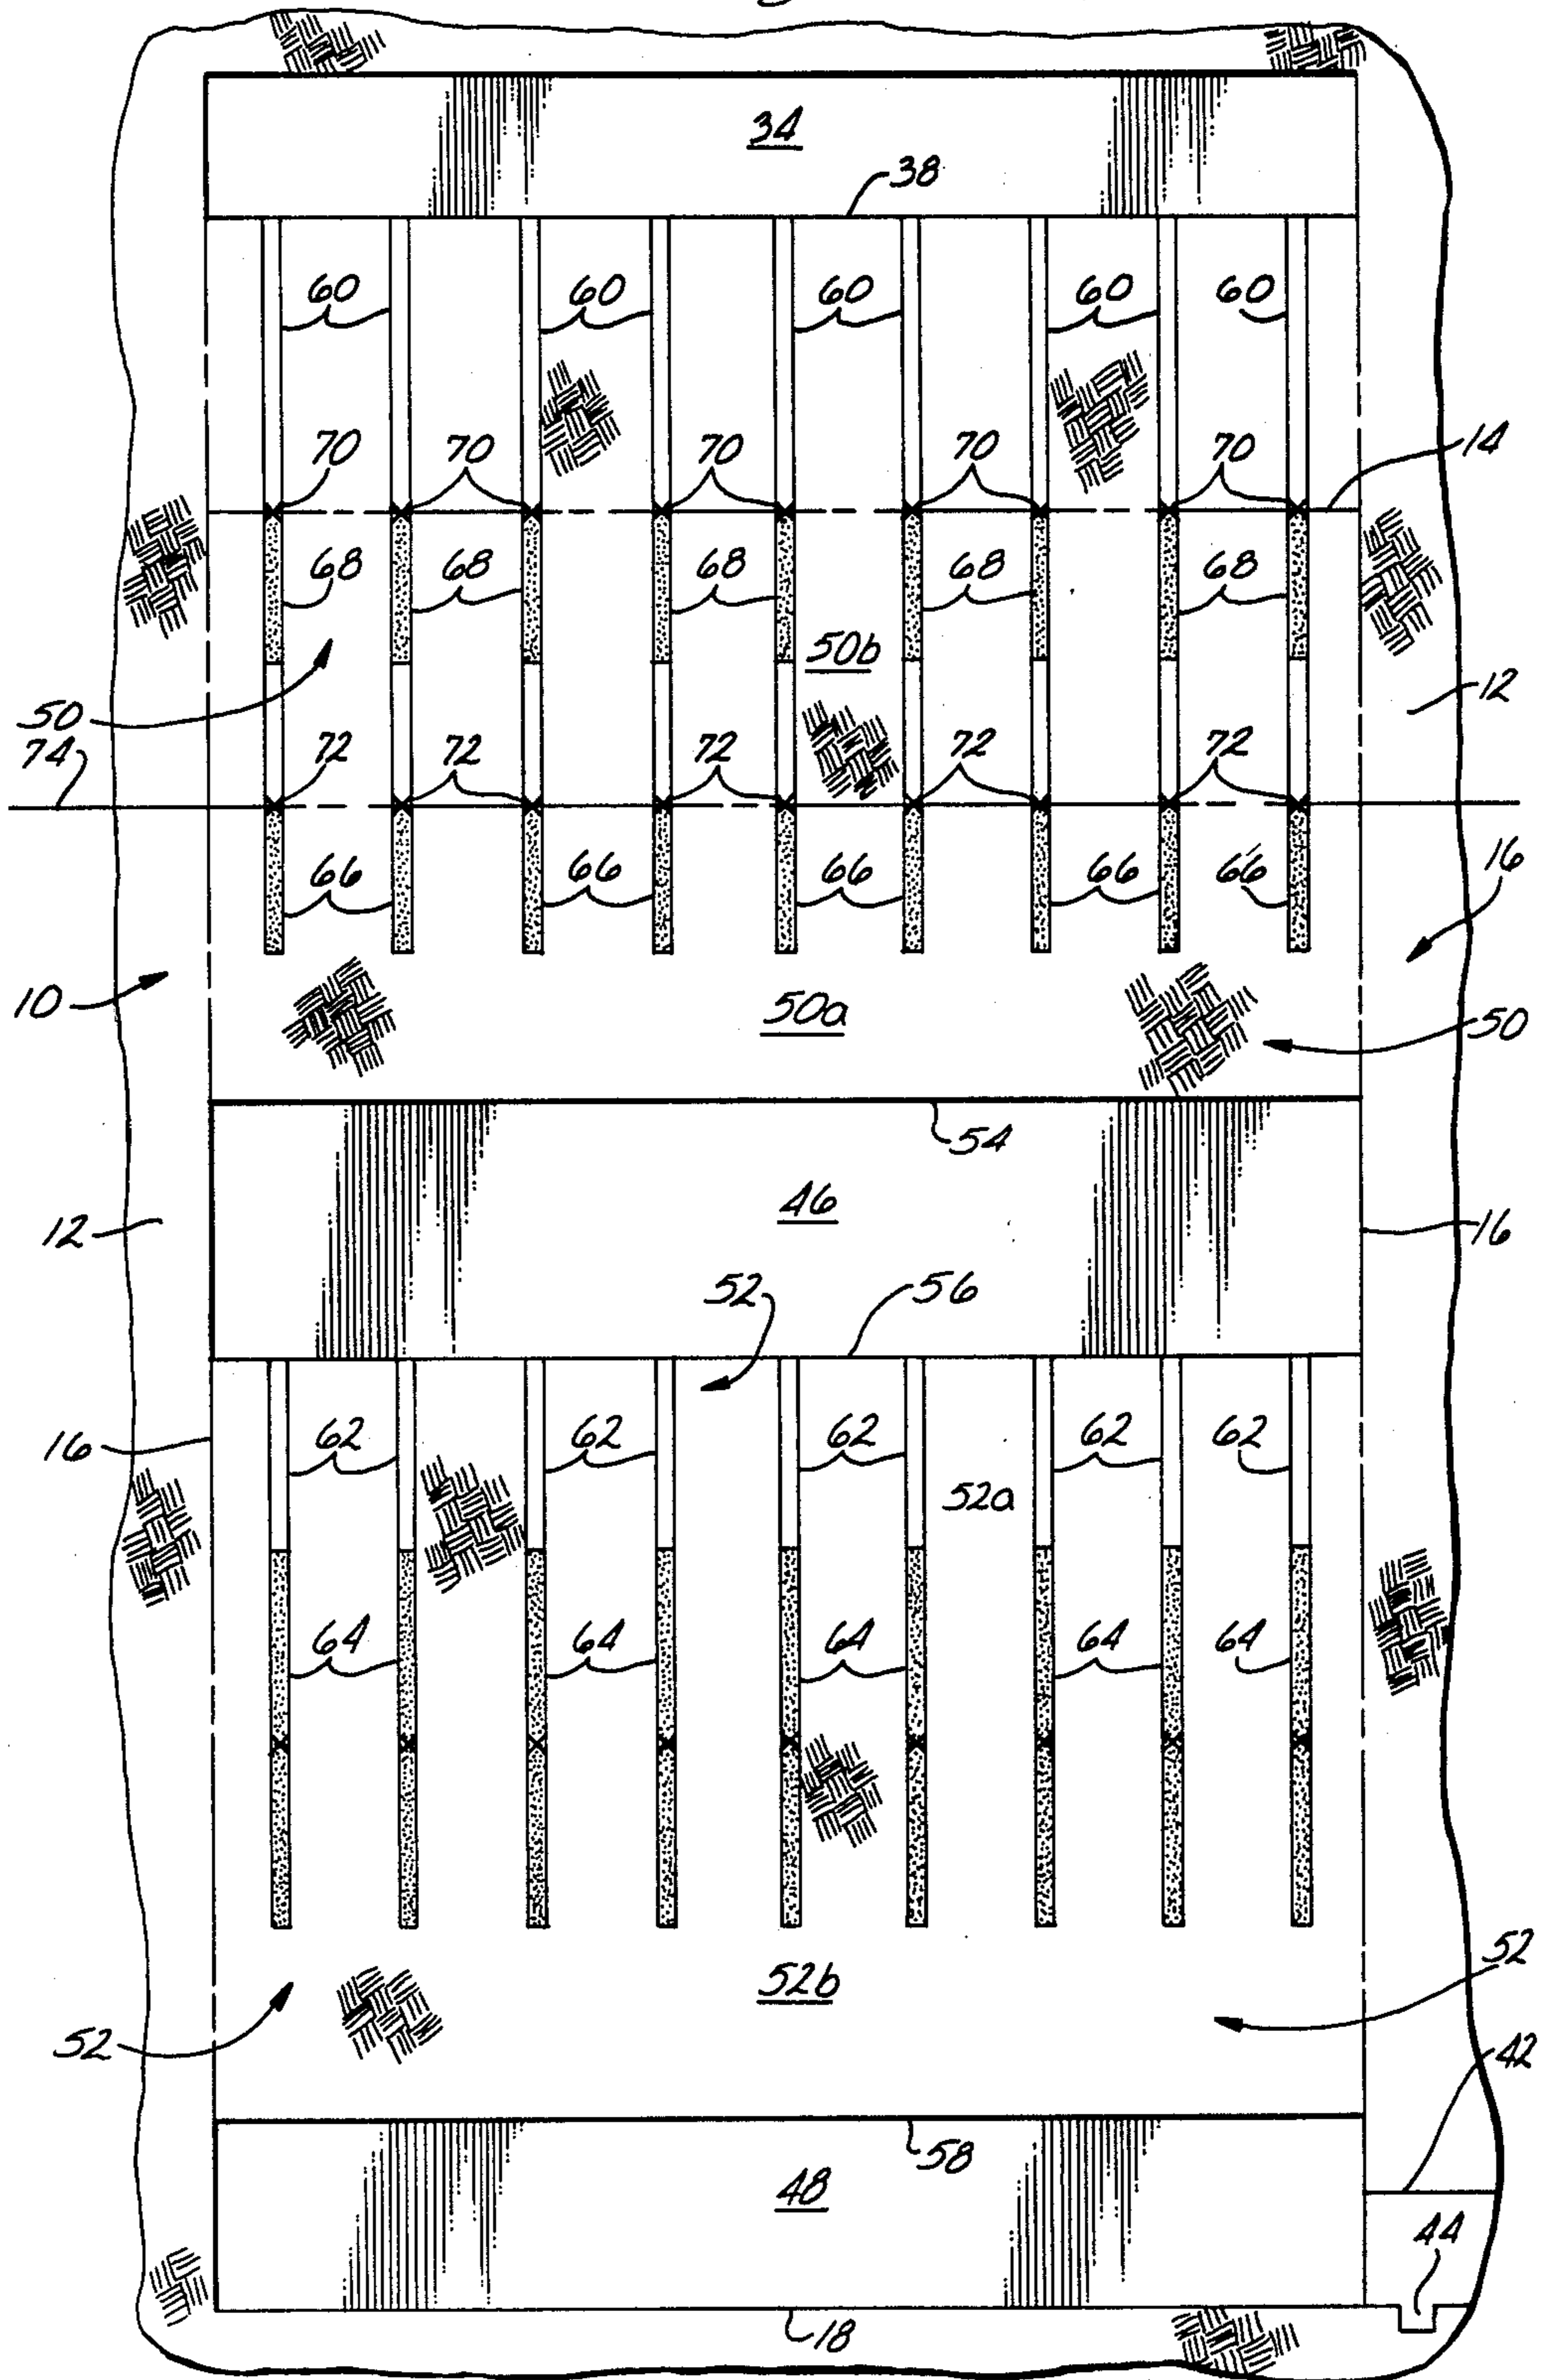 34
38
60 60 60 60 60
70 70 70 70 70
14
68 68 68 68 68
50b
12
50
74
72 72 72 72 72
66 66 66 66 66
16
10
50a
50
54
46
12
16
52
56
16
62 62 62 62 62
52a
64 64 64 64 64
52b
52
52
42
58
48
44
18